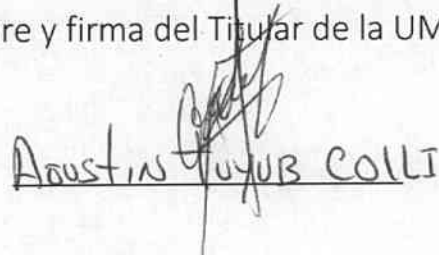 re y firma del Titular de la UM
Agustin Yuyub Colli